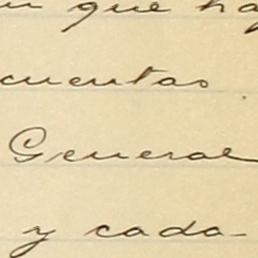 que ha
cuentas
General
y cada-